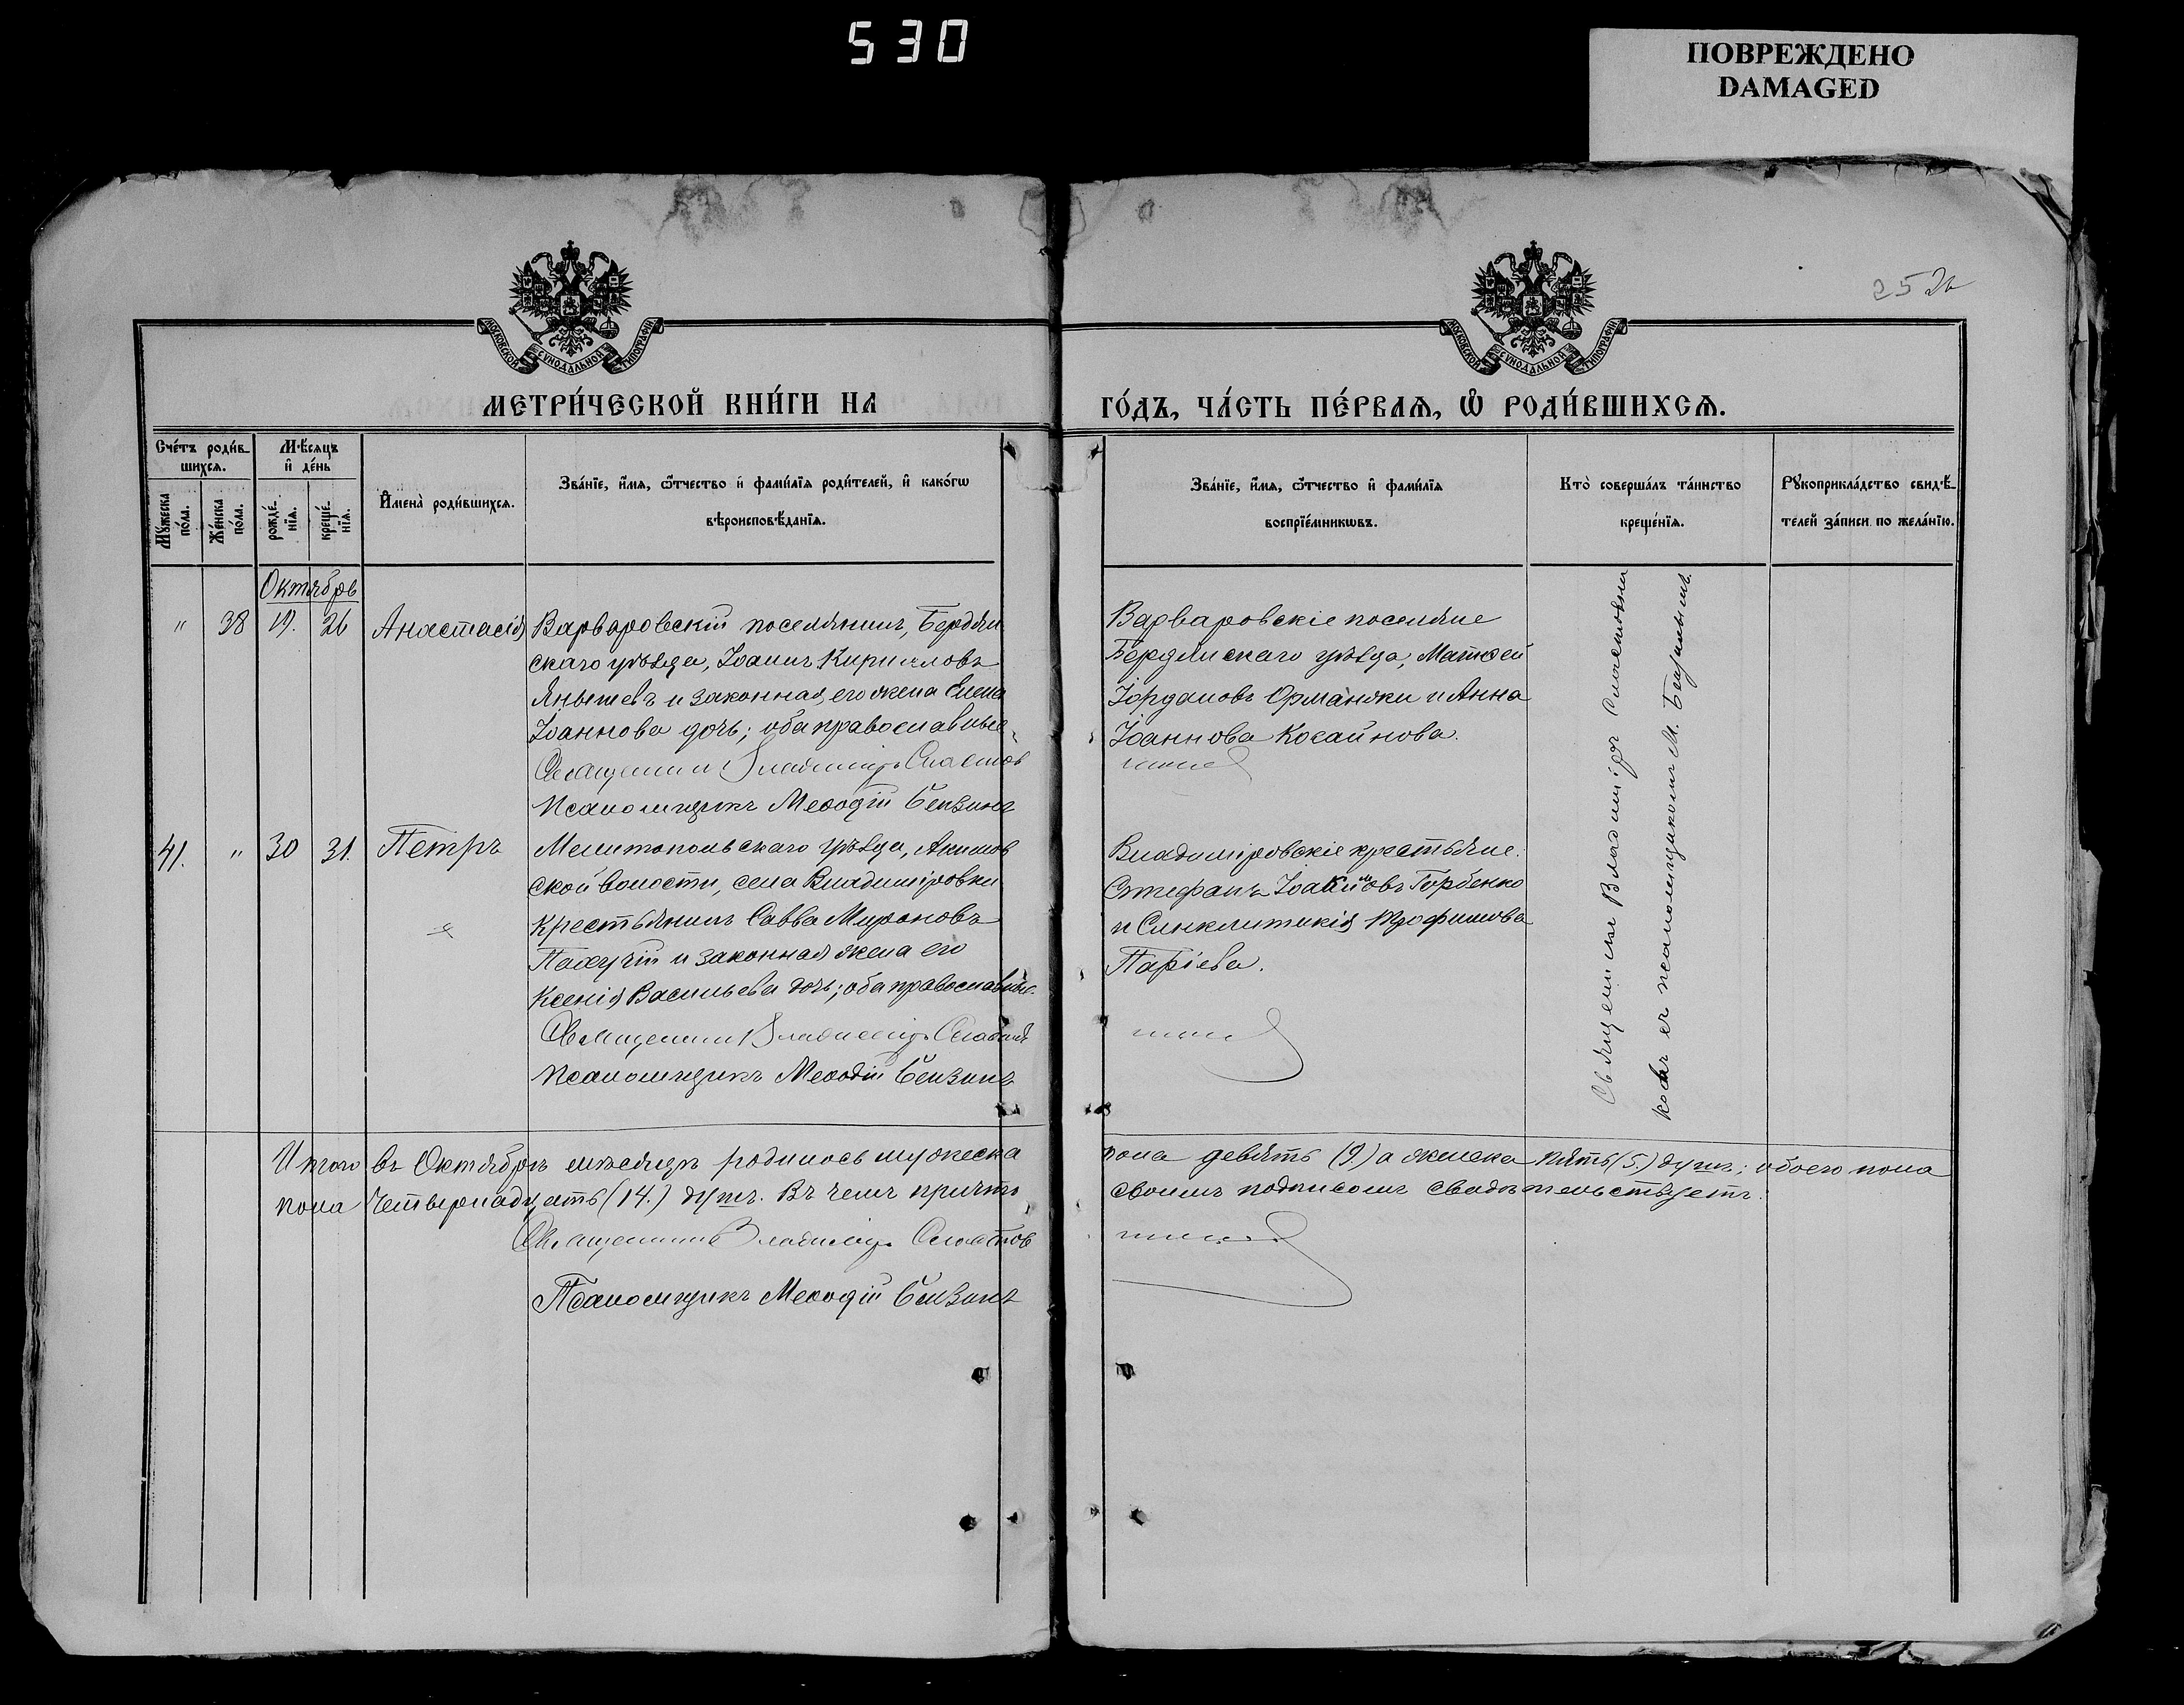 530
ПОВРЕЖДЕНО
DAMAGED
252
МОСКОВСКОЙ СУНОДАЛЬНОЙ ТИПОГРАФІИ
МОСКОВСКОЙ СУНОДАЛЬНОЙ ТИПОГРАФІИ
МЕТРИ́ЧЕСКОЙ КНИ́ГИ НА
ГО́ДЪ, ЧА́СТЬ ПЕ́РВАѦ, Ѡ҆ РОДИ́ВШИХСѦ.
Сче́тъ роди́в-
шихсѧ.
Мꙋ́жеска
по́ла.
Же́нска
по́ла.
Мѣ́сѧцъ
и҆ де́нь
рожде́-
нїѧ.
креще́-
нїѧ.
И҆мена̀ роди́вшихсѧ.
Зва́нїе, и҆́мѧ, ѻ҆́тчество и҆ фами́лїѧ роди́телей, и҆ како́гѡ
вѣроисповѣ́данїѧ.
Зва́нїе, и҆́мѧ, ѻ҆́тчество и҆ фами́лїѧ
воспрїе́мникѡвъ.
Кто̀ соверша́лъ та́инство
креще́нїѧ.
Рꙋкоприкла́дство свидѣ́-
телей за́писи по жела́нїю.
Октябрь
" 38 19. 26 Анастасія
Варваровскій поселянинъ, Бердян
скаго уѣзда, Іоаннъ Кирилловъ
Янышевъ и законная его жена Елена
Іоаннова дочь; оба православные.
Священникъ Владиміръ
Псаломщикъ Меѳодій Бензинъ
Варваровскіе поселяне
Бердянскаго уѣзда, Матѳей
Іордановъ Орманжи и Анна
Іоаннова Косайнова.
41. " 30 31. Петръ
Мелитопольскаго уѣзда, Акимов
ской волости, села Владиміровки
крестьянинъ Савва Мироновъ
и законная жена его
Ксенія Васильева дочь; оба православные.
Священникъ Владиміръ
Псаломщикъ Меѳодій Бензинъ
Владиміровскіе крестьяне:
Стефанъ Іоакимовъ Горбенко
и Синклитикія Трофимова
Паріева.
Священникъ Владиміръ
съ псаломщикомъ М. Бензинымъ.
Итого въ Октябрѣ мѣсяцѣ родилось мужеска пола девять (9.) а женска пять (5.) душъ; обоего пола
пола четырнадцать (14.) душъ. Въ чемъ причтъ своимъ подписомъ свидѣтельствуетъ:
Священникъ Владиміръ
Псаломщикъ Меѳодій Бензинъ